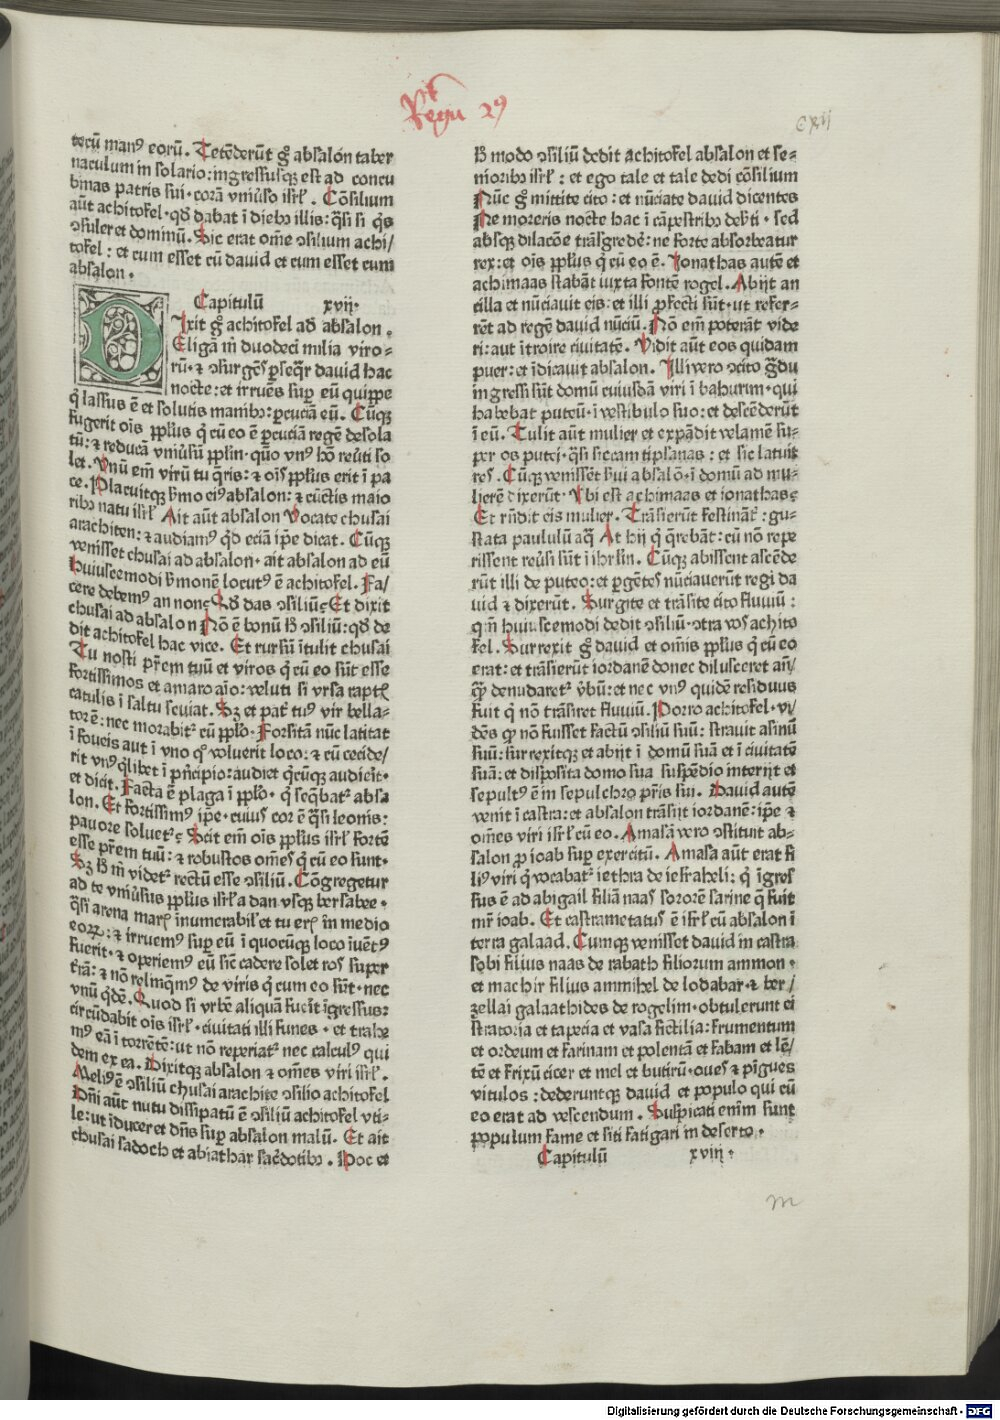 Regū 2⁹
cxij
tecū man⁹ eorū. Tetēderūt gͦ absalon taber
naculum in solario: ingressusqꝫ est ad concu
binas patris sui · corā vniuˀso isrl̓. Cōsilium
aūt achitofel · qd̓ dabat i dieb⁹ illis: q̄si si q̓s
ꝯsuleret dominū. Sic erat om̄e ꝯsilium achi/
tofel: et cum esset cū dauid et cum esset cum
absalon ·
Capitulū xvij·
DIxit gͦ achitofel ad absalon .
Eligā m̓ duodeci milia viro⸗
rū· ⁊ ꝯsurgēs ꝑseq̄r dauid hac
nocte: et irruēs suꝑ eū quippe
q̓ lassus ē et solutis manibꝫ: ꝑcuciā eū. Cūqꝫ
fugerit oīs ꝓpl̓us q̓ cū eo ē ꝑcuciā regē desola
tū: ⁊ reducā vniuˀsū ꝓpl̓m · quō vn⁹ hō reuˀti so
let. Vnū em̄ virū tu q̄ris: ⁊ oīs ꝓpl̓us erit i pa
ce. Placuitqꝫ ẜmo ei⁹ absalon: ⁊ cūctis maio
ribꝫ natu isrl̓ Ait aūt absalon Vocate chusai
arachiten: ⁊ audiam⁹ qd̓ eciā ip̄e dicat. Cūqꝫ
venisset chusai ad absalon · ait absalon ad eū
Huiuscemodi ẜmonē locut⁹ ē achitofel. Fa/
cere debem⁹ an non? Qd̓ das ꝯsiliū? Et dixit
chusai ad absalon Nō ē bonū h̓ ꝯsiliū: qd̓ de
dit achitofel hac vice. Et rursū itulit chusai
Tu nosti pr̄em tuū et viros q̓ cū eo sūt esse
fortissimos et amaro aīo: veluti si vrsa raptꝭ
catulis i saltu seuiat. Sꝫ et pat̓ tu⁹ vir bella⸗
tor ē: nec morabit̓ cū ppl̓o. Forsitā nūc latitat
i foueis aut i vno q̊ voluerit loco: ⁊ cū cecide/
rit vn⁹ q̓libet i pn̓cipio: audiet q̓cūqꝫ audierit·
et dicit. Facta ē plaga i ppl̓o · q̓ seq̄bat̓ absa
lon. Et fortissim⁹ ip̄e · cuius cor ē q̄si leonis:
pauore soluet̓? Scit em̄ oīs ppl̓us isrl̓ forte
esse pr̄em tuū: ⁊ robustos om̄es q̓ cū eo sunt·
Sꝫ h̓ m̓ videt̓ rectū esse ꝯsiliū. Cōgregetur
ad te vniuˀsus ppl̓us isrl̓ a dan vsqꝫ bersabee·
q̄si arena marꝭ inumerabil̓ et tu erꝭ in medio
eoꝝ: ⁊ irruem⁹ suꝑ eū i quocūqꝫ loco iuēt⁹
fuerit· ⁊ operiem⁹ eū sic̄ cadere solet ros super
t̓rā: ⁊ nō relinq̄m⁹ de viris q̓ cum eo sūt· nec
vnū q̓dē. Quod si vrbē aliquā fuc̄it īgressus:
circūdabit oīs isrl̓ · ciuitati illi funes · et trahe
m⁹ eā i torrētē: ut nō reperiat̓ nec calcul⁹ qui
dem ex ea. Dixitqꝫ absalon ⁊ om̄es viri isrl̓.
Meli⁹ ē ꝯsiliū chusai arachite ꝯsilio achitofel
Dn̄i aūt nutu dissipatū ē ꝯsiliū achitofel vti⸗
le: ut iduceret dn̄s suꝑ absalon malū. Et ait
chusai sadoch et abiathar sac̓dotibꝫ. Hoc et
h̓ modo ꝯsiliū dedit achitofel absalon et se⸗
nioribꝫ isrl̓: et ego tale et tale dedi cōsilium
Nūc gͦ mittite cito: et nūciate dauid dicentes
Ne moreris nocte hac i cāpestribꝫ deẜti · sed
absqꝫ dilacōe trāsgredē̓: ne forte absorbeatur
rex: et oīs ppl̓us q̓ cū eo ē. Jonathas autē et
achimaas stabāt iuxta fontē rogel. Abijt an
cilla et nūciauit eis: et illi ꝓfecti sūt· ut refer⸗
rēt ad regē dauid nūciū. Nō em̄ poterāt vide
ri: aut ītroire ciuitatē. Vidit aūt eos quidam
puer: et īdicauit absalon. Illi vero ꝯcito gͣdu
ingressi sūt domū cuiusdā viri i bahurim· qui
habebat puteū· i vestibulo suo: et descēderūt
i eū. Tulit aūt mulier et expādit velamē su⸗
per os putei· q̄si siccam tipsanas: et sic latuit
res. Cūqꝫ venissēt ẜui absalō· i domū ad mu⸗
lierē dixerūt· Vbi est achimaas et ionathas?
Et rn̄dit eis mulier. Trāsierūt festināt̓: gu⸗
stata paululū aq̄ At hij q̓ q̄rebāt: cū nō repe
rissent reuˀsi sūt i ihrl̓m. Cūqꝫ abissent ascēde
rūt illi de puteo: et ꝑgētes nūciauerūt regi da
uid ⁊ dixerūt. Surgite et trāsite cito fluuiū:
qm̄ huiuscemodi dedit ꝯsiliū· ꝯtra vos achito
fel. Surrexit gͦ dauid et om̄is ppl̓us q̓ cū eo
erat: et trāsierūt iordanē donec dilusceret an̄/
q̄ꝫ denudaret̓ v̓bū: et nec vn⁹ quidē residuus
fuit q̓ nō trāsiret fluuiū. Porro achitofel · vi⸗
dēs ꝙ nō fuisset factū ꝯsiliū suū: strauit asinū
suū: surrexitqꝫ et abijt i domū suā et i ciuitatē
suā: et disposita domo sua suspēdio interijt et
sepult⁹ ē in sepulchro pr̄is sui. Dauid autē
venit i castra: et absalon trāsijt iordanē: ip̄e ⁊
om̄es viri isrl̓ cū eo. Amasā vero ꝯstituit ab⸗
salon ꝓ ioab suꝑ exercitū. Amasa aūt erat fi
li⁹ viri q̓ vocabat̓ iethra de iesraheli: q̓ īgres
sus ē ad abigail filiā naas sororē sarine q̄ fuit
mr̄ ioab. Et castrametatus ē isrl̓ cū absalon i
terra galaad. Cumqꝫ venisset dauid in castra
sobi filius naas de rabath filiorum ammon·
et machir filius ammihel de lodabar· ⁊ ber/
zellai galaathides de rogelim· obtulerunt ei
stratoria et tapecia et vasa fictilia: frumentum
et ordeum et farinam et polentā et fabam et lē/
tē et frixū cicer et mel et butirū· oues ⁊ pīgues
vitulos: dederuntqꝫ dauid et populo qui cū
eo erat ad vescendum. Suspicati enim sunt
populum fame et siti fatigari in deserto.
Capitulū xviij·
m
Digitalisierung gefördert durch die Deutsche Forschungsgemeinschaft - DFG